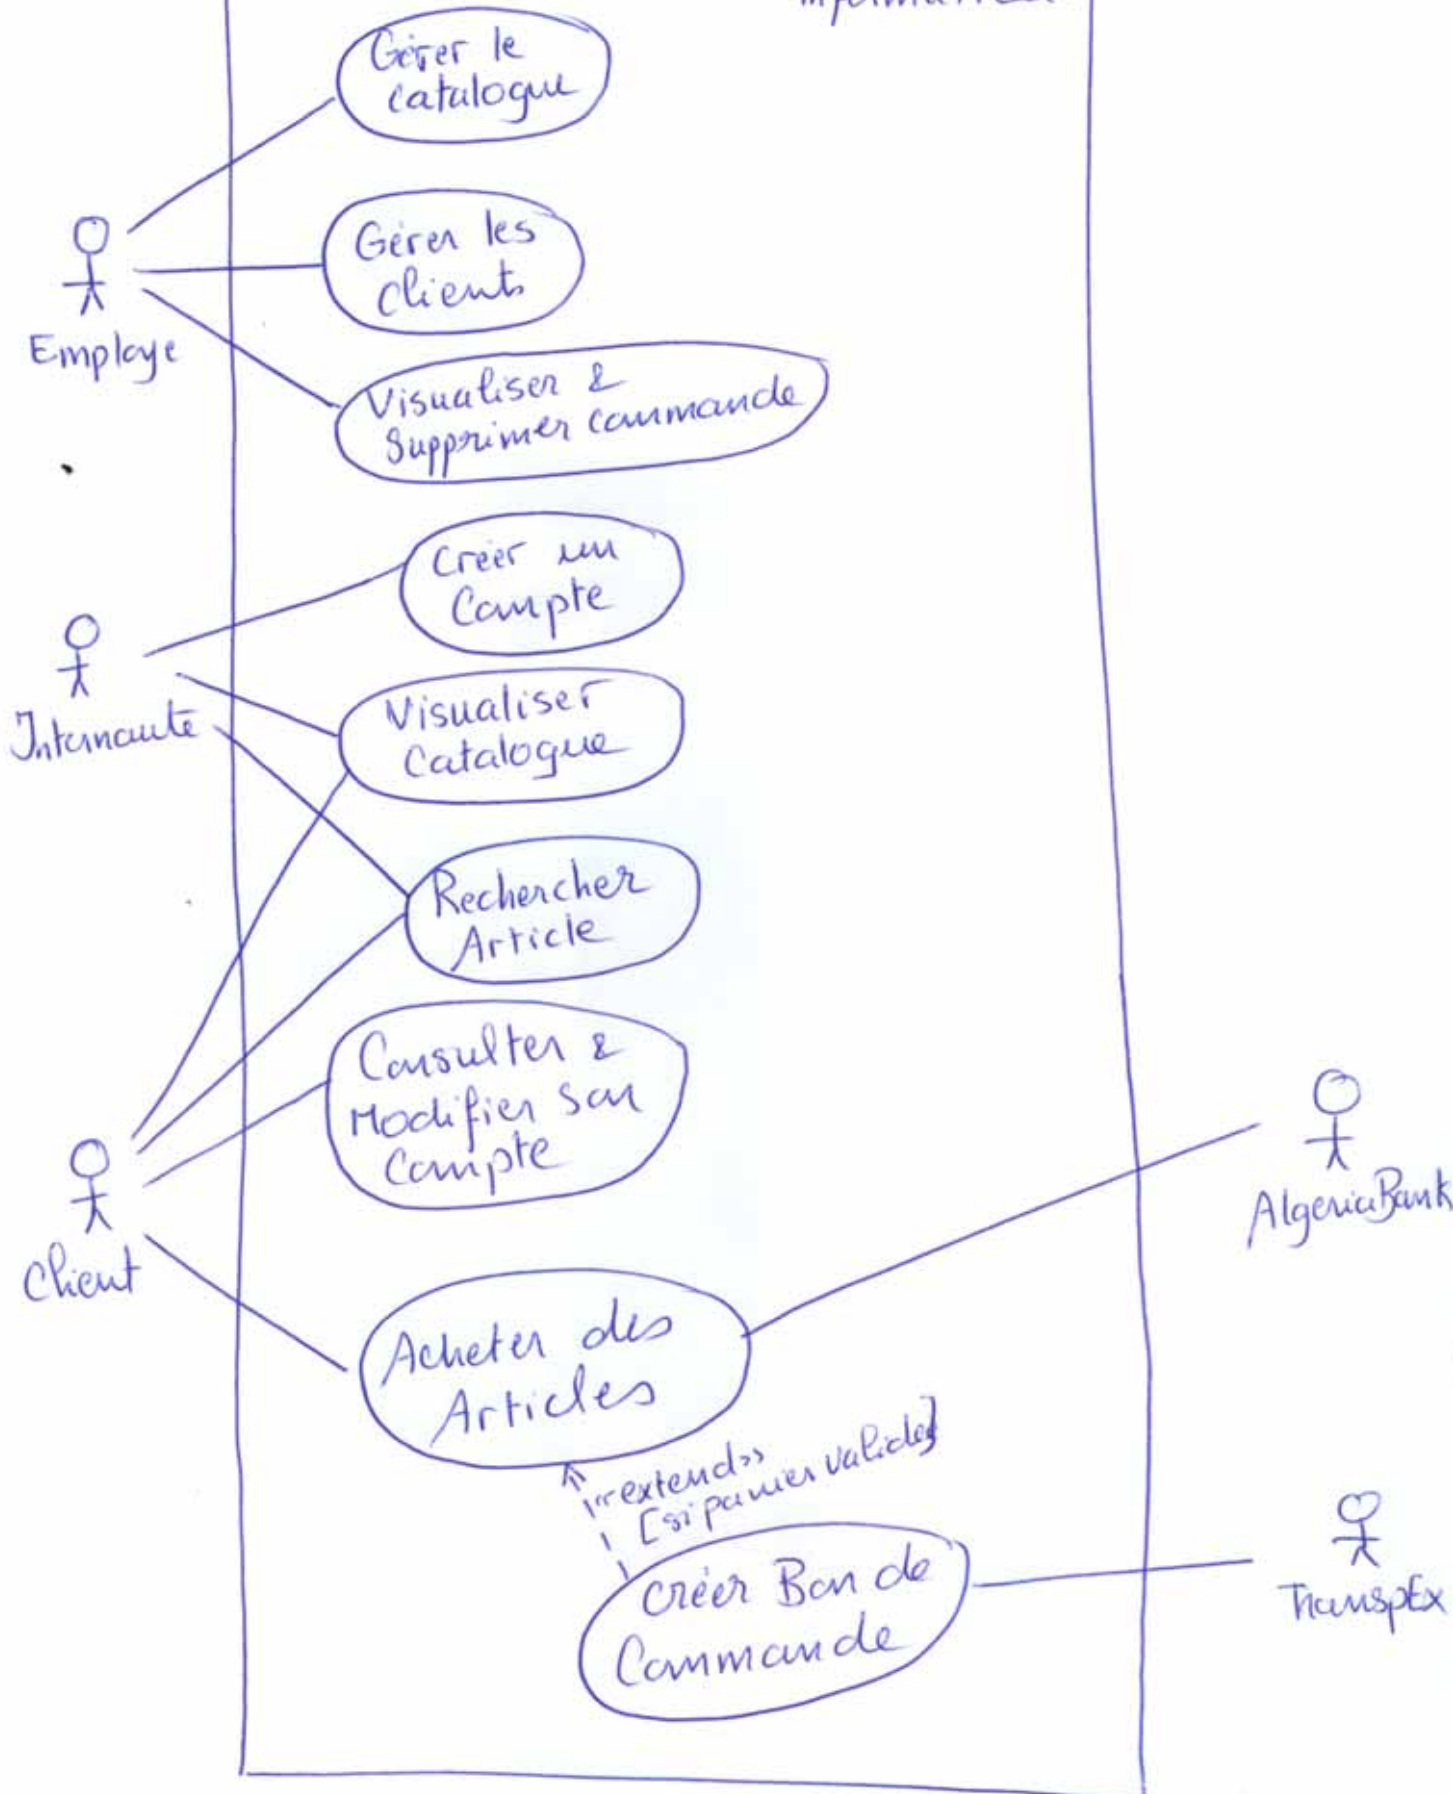 Gérer le
catalogue
Gérer les
clients
Employe
Visualiser &
Supprimer commande
Créer un
Compte
Internaute
Visualiser
Catalogue
Rechercher
Article
Consulter &
Modifier son
Compte
Client
AlgeriaBank
Acheter des
Articles
«extend»
[si panier valide]
Créer Bon de
Commande
TranspEx